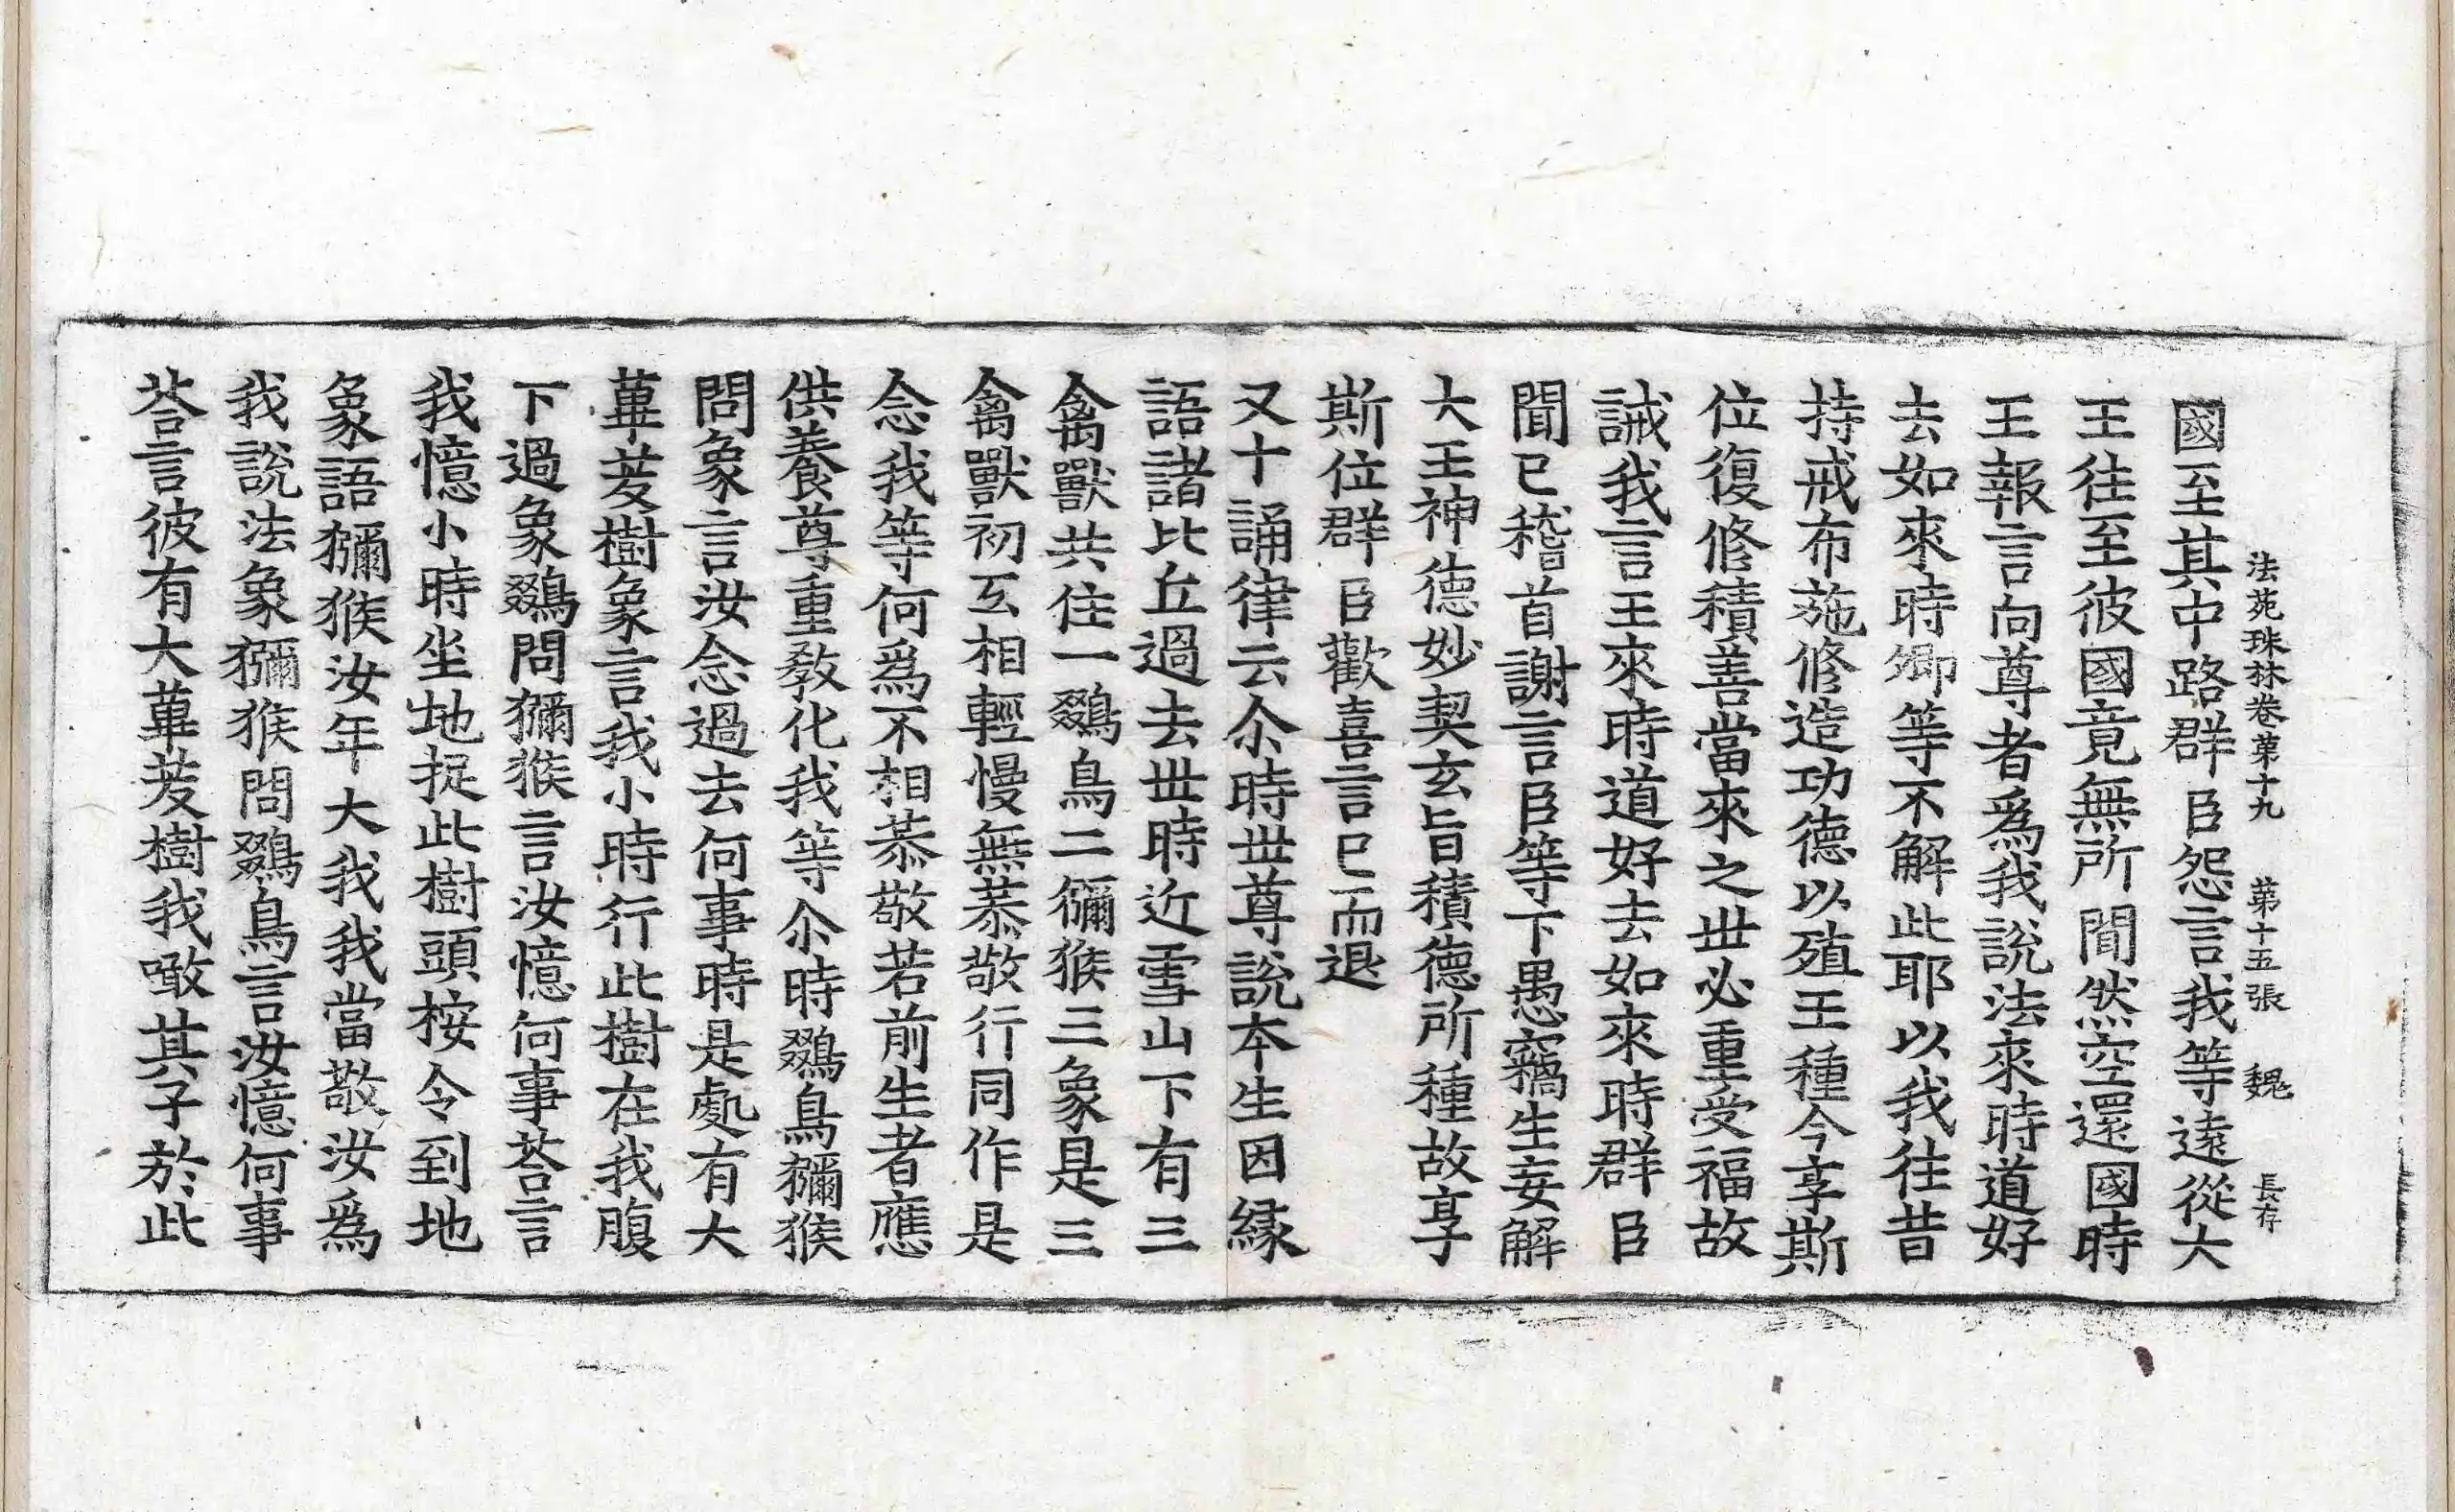 法苑珠林卷苐十九　苐十五張　魏　長存
國至其中路群臣怨言我等遠從大
王往至彼國竟無所聞然空還國時
王報言向尊者為我說法來時道好
去如來時卿等不解此耶以我往昔
持戒布施修造功德以殖王種今享斯
位復修積善當來之世必重受福故
誡我言王來時道好去如來時群臣
聞已稽首謝言臣等下愚竊生妄解
大王神德妙契玄旨積德所種故享
斯位群臣歡喜言已而退
又十誦律云尒時世尊說本生因緣
語諸比丘過去世時近雪山下有三
禽獸共住一鵽鳥二獼猴三象是三
禽獸初互相輕慢無恭敬行同作是
念我等何為不相恭敬若前生者應
供養尊重教化我等尒時鵽鳥獼猴
問象言汝念過去何事時是處有大
蓽茇樹象言我小時行此樹在我腹
下過象鵽問獼猴言汝憶何事荅言
我憶小時坐地捉此樹頭桉令到地
象語獼猴汝年大我我當敬汝為
我說法象獼猴問鵽鳥言汝憶何事
荅言彼有大蓽茇樹我噉其子於此